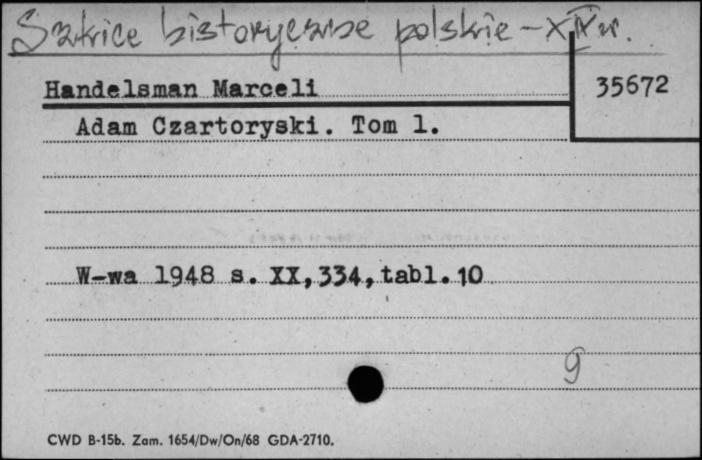 Szkice historyczne polskie - XIX w.
Handelsman Marceli
35672
Adam Czartoryski. Tom 1.
W-wa 1948 s. XX,334,tabl.10
9
CWD B-15b. Zam. 1654/Dw/On/68 GDA-2710.